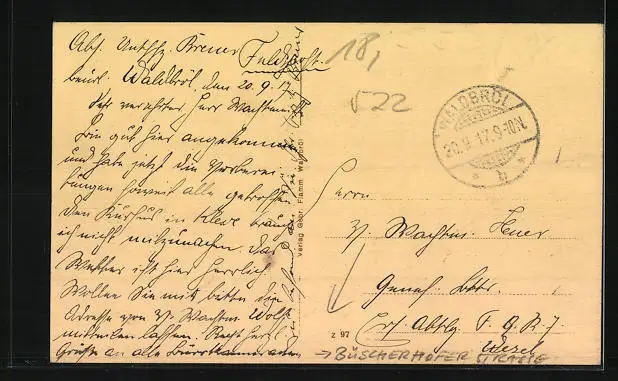 Abs. Untffz. Brener Feldpost
beurl. Waldbröl, den 20.9.17
Sehr verehrter Herr Wachtmeister
Bin gut hier angekommen
und habe jetzt die Vorberei-
tungen soweit alle getroffen
Den Kursus in Kleve brauche
ich nicht mitzumachen Das
Wetter ist hier herrlich
Wollen Sie mir bitte die
Adresse von V. Wachtm. Wolf
mitteilen lassen. Recht herzl.
Grüße an alle Bürokameraden
Verlag Gebr. Flamm Waldbröl
18,
522
WALDBRÖL
20.9.17.9-10N.
* b *
Herrn
V. Wachtm. Heuer
Genes. Bttr.
Ers. Abtlg. F. A. R. 7
Wesel
Z 97
→ BÜSCHERHOFER STRAßE